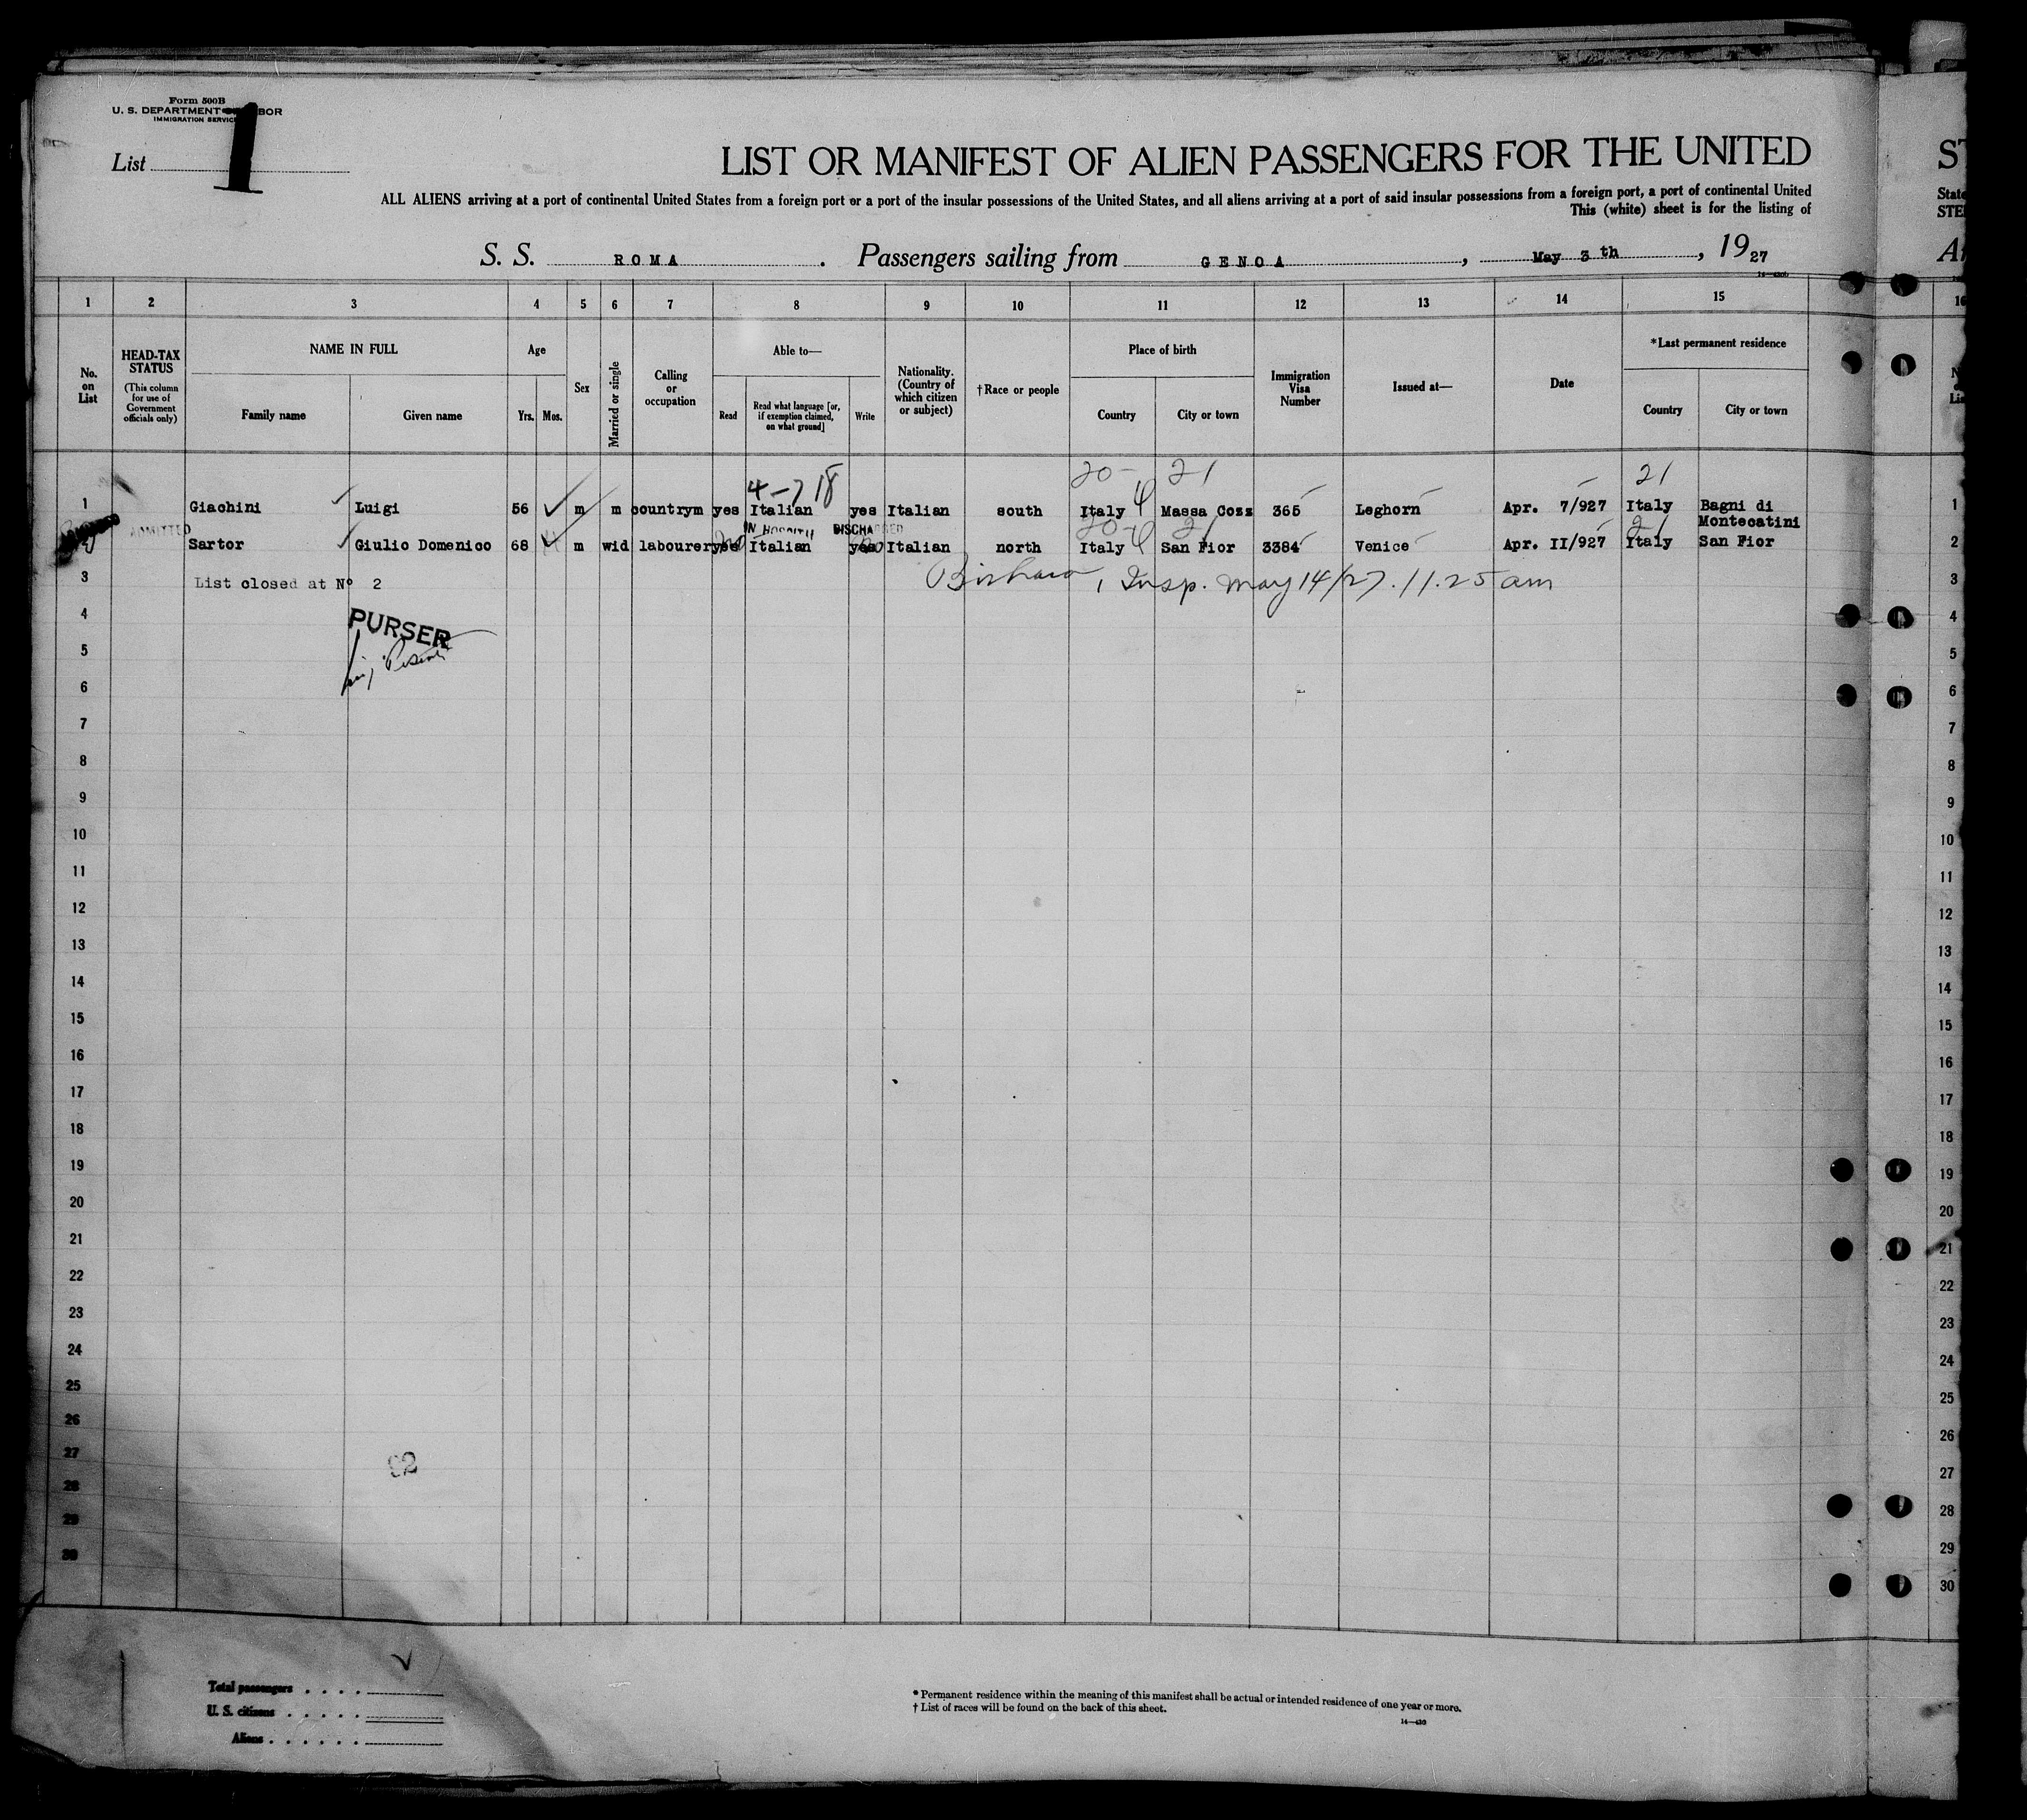 Form 500B
U. S. DEPARTMENT OF LABOR
IMMIGRATION SERVICE
List 1
LIST OR MANIFEST OF ALIEN PASSENGERS FOR THE UNITED
ALL ALIENS arriving at a port of continental United States from a foreign port or a port of the insular possessions of the United States, and all aliens arriving at a port of said insular possessions from a foreign port, a port of continental United
This (white) sheet is for the listing of
S. S. ROMA . Passengers sailing from GENOA , May 3 th , 1927
1 2 3 4 5 6 7 8 9 10 11 12 13 14 15
No. on List
HEAD-TAX STATUS (This column for use of Government officials only)
NAME IN FULL
Family name Given name
Age
Yrs. Mos.
Sex
Married or single
Calling or occupation
Able to—
Read
Read what language [or, if exemption claimed, on what ground]
Write
Nationality. (Country of which citizen or subject)
†Race or people
Place of birth
Country City or town
Immigration Visa Number
Issued at—
Date
*Last permanent residence
Country City or town
20- 21 21
1 Giachini Luigi 56 m m countrym yes Italian yes Italian south Italy Massa Coss 365 Leghorn Apr. 7/927 Italy Bagni di Montecatini 1
ADMITTED IN HOSPITAL DISCHARGED 20- 21 21
2 Sartor Giulio Domenico 68 m wid labourer yes Italian yes Italian north Italy San Fior 3384 Venice Apr. II/927 Italy San Fior 2
3 List closed at Nº 2 Insp. May 14/27. 11.25 am 3
4 PURSER 4
5 5
6 6
7 7
8 8
9 9
10 10
11 11
12 12
13 13
14 14
15 15
16 16
17 17
18 18
19 19
20 20
21 21
22 22
23 23
24 24
25 25
26 26
27 27
28 28
29 29
30 30
Total passengers
U. S. citizens
Aliens
* Permanent residence within the meaning of this manifest shall be actual or intended residence of one year or more.
† List of races will be found on the back of this sheet.